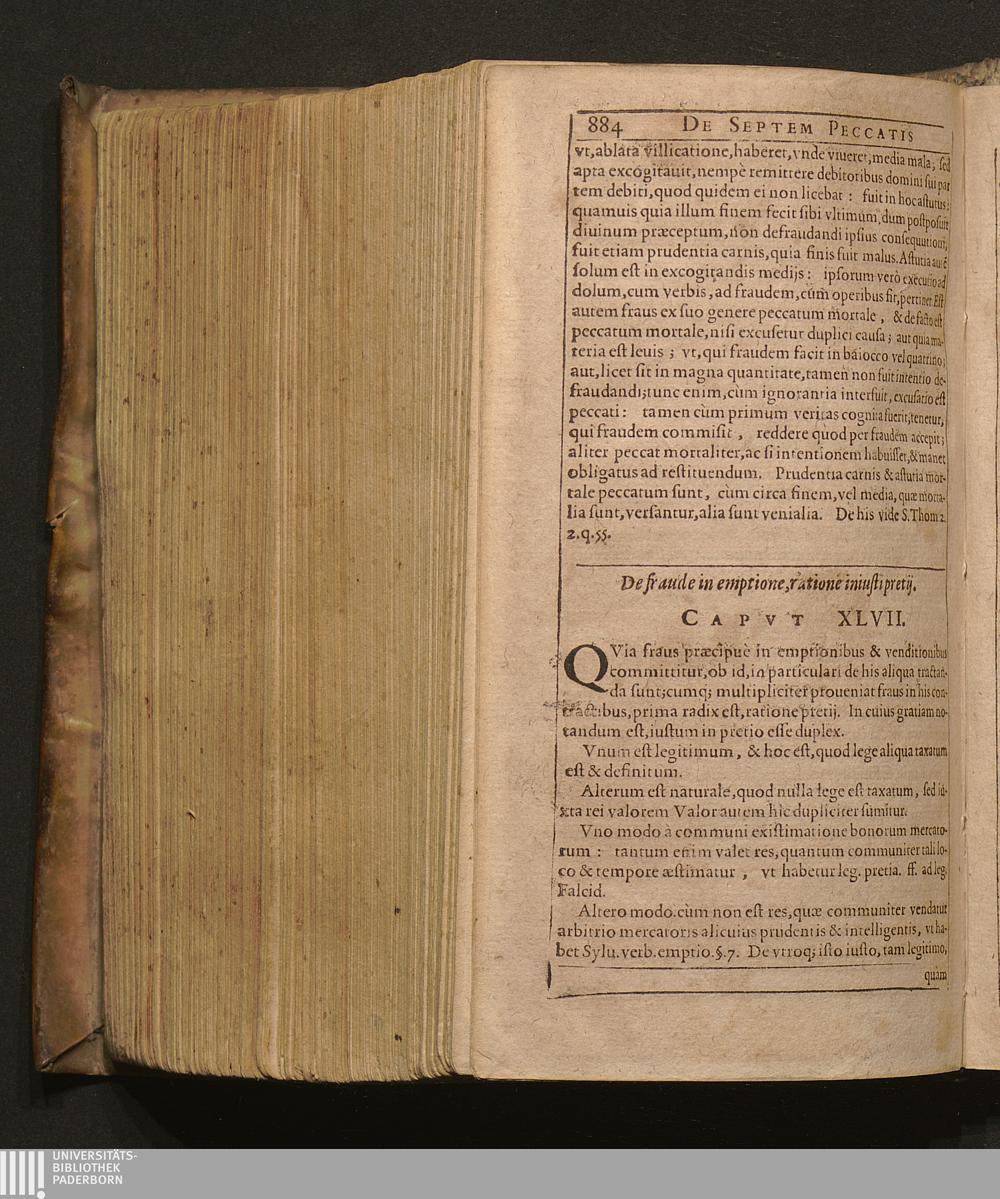 884 DE SEPTEM PECCATIS
vt,ablata villicatione,haberet,vnde viueret,media mala; sed
apta excogitauit,nempè remittere debitoribus domini sui par
tem debiti,quod quidem ei non licebat : fuit in hoc astutus;
quamuis quia illum finem fecit sibi vltimum, dum postposuit
diuinum præceptum,nõn defraudandi ipsius consequutioni,
fuit etiam prudentia carnis,quia finis fuit malus. Astutia autẽ
solum est in excogitandis medijs : ipsorum verò executio ad
dolum,cum verbis,ad fraudem,cùm operibus fit,pertinet Est
autem fraus ex suo genere peccatum mortale , & de facto est
peccatum mortale,nisi excusetur duplici causa; aut quia ma-
teria est leuis ; vt,qui fraudem facit in baiocco vel quattrino;
aut,licet sit in magna quantitate,tamen non fuit intentio de-
fraudandi;tunc enim,cùm ignorantia interfuit, excusatio est
peccati : tamen cùm primum veritas cognita fuerit;tenetur,
qui fraudem commisit , reddere quod per fraudem accepit;
aliter peccat mortaliter,ac si intentionem habuisset,& manet
obligatus ad restituendum. Prudentia carnis & astutia mor-
tale peccatum sunt, cùm circa finem,vel media, quæ morta-
lia sunt,versantur,alia sunt venialia. De his vide S. Thom 2.
2.q.55.
De fraude in emptione,ratione iniusti pretij.
CAPVT XLVII.
QVia fraus præcipuè in emptionibus & venditionibus
committitur,ob id,in particulari de his aliqua tractan-
da sunt;cumq; multipliciter proueniat fraus in his con-
tractibus,prima radix est,ratione pretij. In cuius gratiam no-
tandum est,iustum in pretio esse duplex.
Vnum est legitimum , & hoc est,quod lege aliqua taxatum
est & definitum.
Alterum est naturale,quod nulla lege est taxatum, sed iu-
xta rei valorem Valor autem hic dupliciter sumitur.
Vno modo à communi existimatione bonorum mercato-
rum : tantum enim valet res,quantum communiter tali lo-
co & tempore æstimatur , vt habetur leg. pretia. ff. ad leg.
Falcid.
Altero modo.cùm non est res,quæ communiter vendatur
arbitrio mercatoris alicuius prudentis & intelligentis, vt ha-
bet Sylu. verb.emptio.§.7. De vtroq; isto iusto, tam legitimo,
quàm
UNIVERSITÄTS-
BIBLIOTHEK
PADERBORN